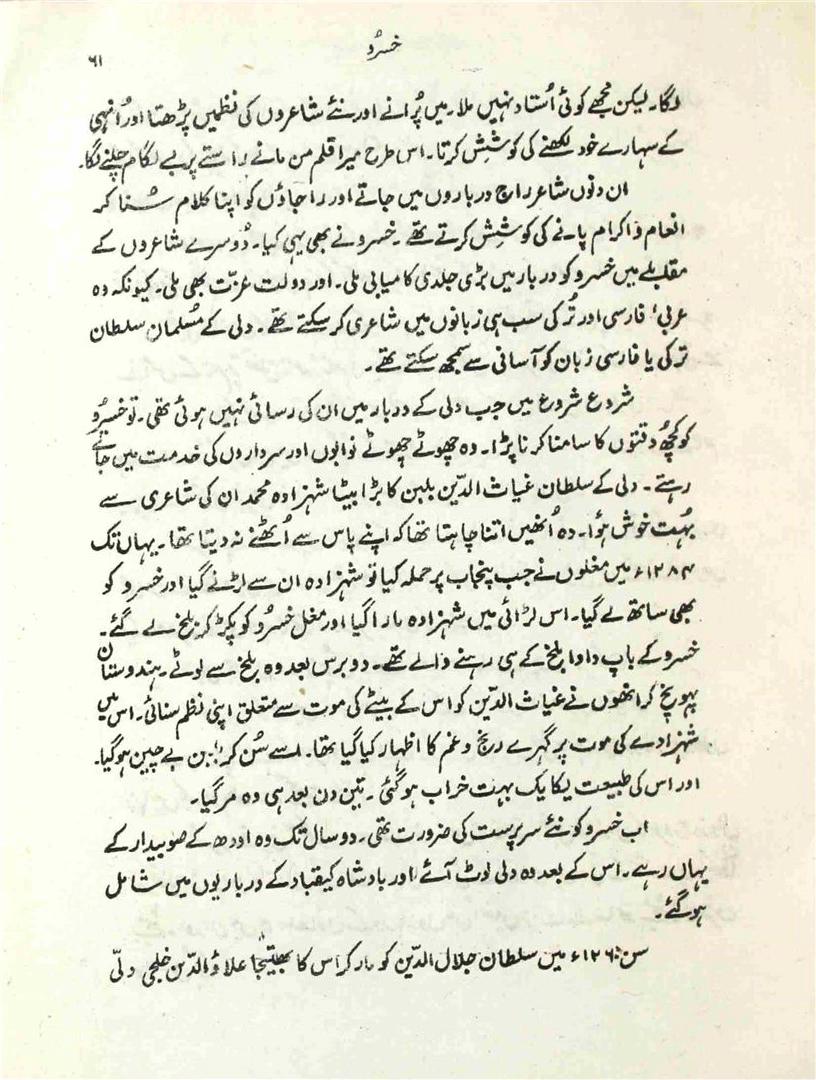 خسرو
۶۱
لگا۔ لیکن مجھے کوئی اُستاد نہیں ملا۔ میں پُرانے اور نئے شاعروں کی نظمیں پڑھتا اور اُنہی
کے سہارے خود لکھنے کی کوشش کرتا۔ اس طرح میرا قلم من مانے راستے پر بے لگام چلنے لگا۔
ان دنوں شاعر راج درباروں میں جاتے اور راجاؤں کو اپنا کلام سُنا کر
انعام و اکرام پانے کی کوشش کرتے تھے۔ خسرو نے بھی یہی کیا۔ دُوسرے شاعروں کے
مقابلے میں خسرو کو دربار میں بڑی جلدی کامیابی ملی۔ اور دولت عزّت بھی ملی۔ کیونکہ وہ
عربی، فارسی اور تُرکی سب ہی زبانوں میں شاعری کر سکتے تھے۔ دلی کے مُسلمان سلطان
ترکی یا فارسی زبان کو آسانی سے سمجھ سکتے تھے۔
شروع شروع میں جب دلی کے دربار میں ان کی رسائی نہیں ہوئی تھی۔ تو خسرو
کو کچھ دقتوں کا سامنا کرنا پڑا۔ وہ چھوٹے چھوٹے نوابوں اور سرداروں کی خدمت میں جاتے
رہتے۔ دلی کے سلطان غیاث الدّین بلبن کا بڑا بیٹا شہزادہ محمد ان کی شاعری سے
بہُت خوش ہوُا۔ وہ اُنھیں اتنا چاہتا تھا کہ اپنے پاس سے اُٹھنے نہ دیتا تھا۔ یہاں تک
۱۲۸۴ء میں مغلوں نے جب پنجاب پر حملہ کیا تو شہزادہ ان سے لڑنے گیا اور خسرو کو
بھی ساتھ لے گیا۔ اس لڑائی میں شہزادہ مارا گیا اور مغل خسرُو کو پکڑ کر بلخ لے گئے۔
خسرو کے باپ دادا بلخ کے ہی رہنے والے تھے۔ دو برس بعد وہ بلخ سے لوٹے۔ ہندوستان
پہونچ کر انھوں نے غیاث الدّین کو اس کے بیٹے کی موت سے متعلق اپنی نظم سنائی۔ اس میں
شہزادے کی موت پر گہرے رنج و غم کا اظہار کیا گیا تھا۔ اسے سُن کر بلبن بے چین ہو گیا۔
اور اس کی طبیعت یکایک بہت خراب ہو گئی۔ تین دن بعد ہی وہ مر گیا۔
اب خسرو کو نئے سرپرست کی ضرورت تھی۔ دو سال تک وہ اودھ کے صوبیدار کے
یہاں رہے۔ اس کے بعد وہ دلی لوٹ آئے اور بادشاہ کیقباد کے درباریوں میں شامل
ہو گئے۔
سن ۱۲۶۰ء میں سلطان جلال الدّین کو مار کر اس کا بھتیجا علاؤالدّین خلجی دلّی